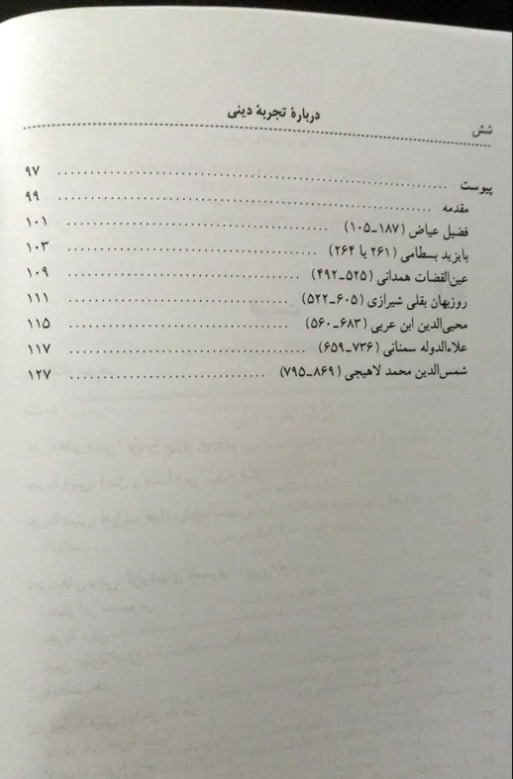 شش
دربارهٔ تجربهٔ دینی
پیوست ........................................ ۹۷
مقدمه ........................................ ۹۹
فضیل عیاض (۱۸۷ـ۱۰۵) ........................................ ۱۰۱
بایزید بسطامی (۲۶۱ یا ۲۶۴) ........................................ ۱۰۳
عین‌القضات همدانی (۵۲۵ـ۴۹۲) ........................................ ۱۰۹
روزبهان بقلی شیرازی (۶۰۵ـ۵۲۲) ........................................ ۱۱۱
محیی‌الدین ابن عربی (۶۸۳ـ۵۶۰) ........................................ ۱۱۵
علاءالدوله سمنانی (۷۳۶ـ۶۵۹) ........................................ ۱۱۷
شمس‌الدین محمد لاهیجی (۸۶۹ـ۷۹۵) ........................................ ۱۲۷